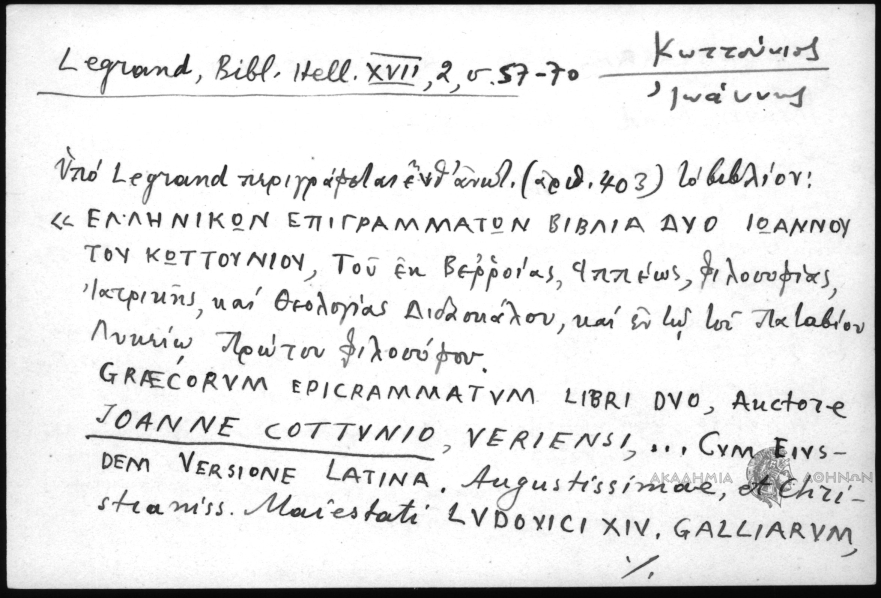 Legrand, Bibl. Hell. XVII, 2, σ. 57-70
Κωττούνιος
Ἰωάννης
Ὑπό Legrand περιγράφεται ἐνθ' ἀνωτ. (ἀριθ. 403) τό βιβλίον:
« ΕΛΛΗΝΙΚΩΝ ΕΠΙΓΡΑΜΜΑΤΩΝ ΒΙΒΛΙΑ ΔΥΟ ΙΩΑΝΝΟΥ
ΤΟΥ ΚΩΤΤΟΥΝΙΟΥ, Τοῦ ἐκ Βεῤῥοίας, Ἱππέως, Φιλοσοφίας,
Ἰατρικῆς, καί Θεολογίας Διδασκάλου, καί ἐν τῷ τοῦ Παταβίου
Λυκείῳ Πρώτου Φιλοσόφου.
GRÆCORVM EPICRAMMATVM LIBRI DVO, Auctore
JOANNE COTTVNIO, VERIENSI, ... CVM EIVS-
DEM VERSIONE LATINA. Augustissimae, et Chri-
stianiss. Maiestati LVDOVICI XIV. GALLIARVM,
./.
ΑΚΑΔΗΜΙΑ ΑΘΗΝΩΝ